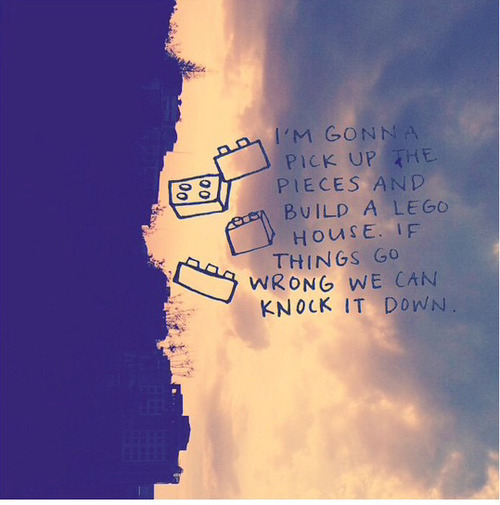 I'M GONNA
PICK UP THE
PIECES AND
BUILD A LEGO
HOUSE. IF
THINGS GO
WRONG WE CAN
KNOCK IT DOWN.